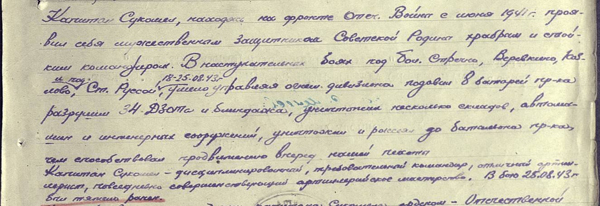 Капитан Сукошен, находясь на фронте Отеч. Войны с июня 1941 г. проя-
вил себя мужественным защитником Советской Родины храбрым и стой-
ким командиром. В наступательных боях под бол. Стрено, Веревкино,
и под. 18-25.08.43 г.
лово, Ст. Русса, умело управляя огнем дивизиона подавил 8 батарей пр-ка
разрушил 34 Дзота и блиндажа, уничтожил несколько складов, автома-
шин и инженерных сооружений, уничтожил и рассеял до батальона пр-ка,
чем способствовал продвижению вперед нашей пехоты
Капитан Сукошен - дисциплинированный, требовательный командир, отличный артил-
лерист, повседневно совершенствующий артиллерийское мастерство. В бою 25.08.43 г
был тяжело ранен.
орденом - Отечественной